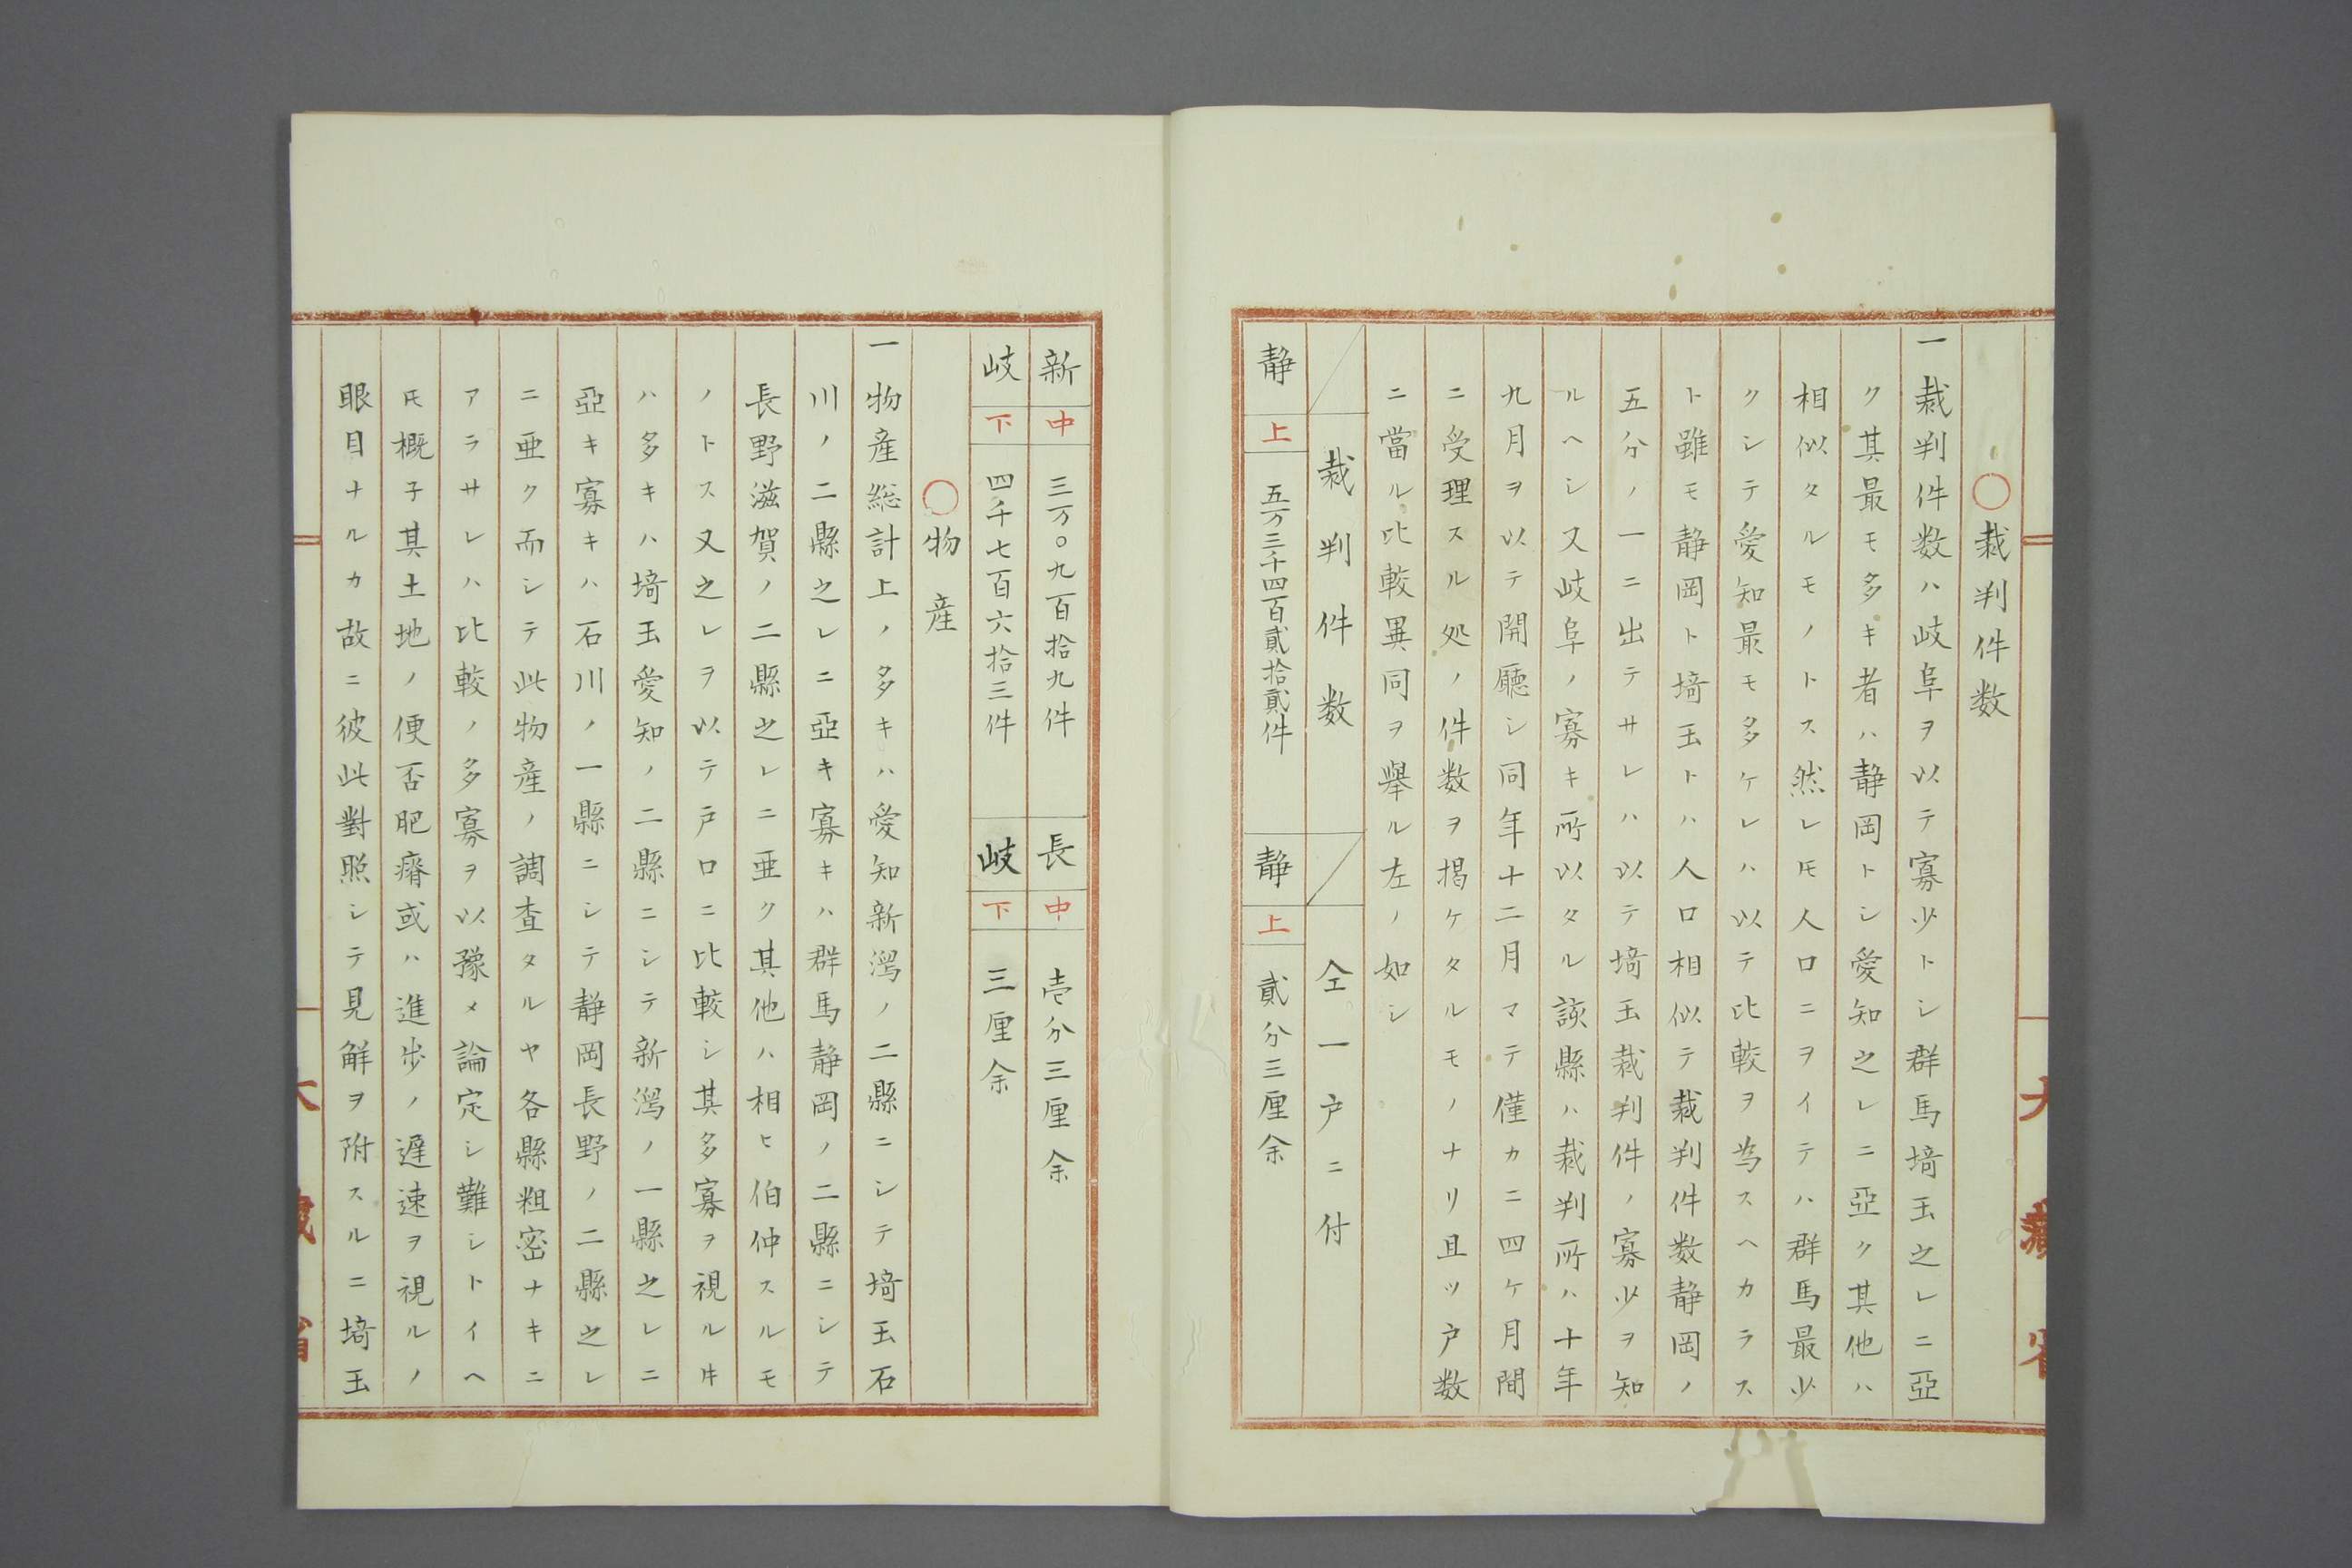 〇裁判件数
一裁判件数ハ岐阜ヲ以テ寡少トシ群馬埼玉之レニ亞
ク其最モ多キ者ハ静岡トシ愛知之レニ亞ク其他ハ
相似タルモノトス然レ𪜈人口ニヲイテハ群馬最少
クシテ愛知最モ多ケレハ以テ比較ヲ為スヘカラス
ト雖モ静岡ト埼玉トハ人口相似テ裁判件数静岡ノ
五分ノ一ニ出テサレハ以テ埼玉裁判件ノ寡少ヲ知
ルヘシ又岐阜ノ寡キ所以タル該縣ハ裁判所ハ十年
九月ヲ以テ開廳シ同年十二月マテ僅カニ四ケ月間
ニ受理スル処ノ件数ヲ掲ケタルモノナリ且ツ户数
ニ當ル比較異同ヲ舉ル左ノ如シ
裁判件数
仝一户ニ付
静 上 五万三千四百貳拾貳件
静 上 貳分三厘余
新 中 三万〇九百拾九件
長 中 壱分三厘余
岐 下 四千七百六拾三件
岐 下 三厘余
〇物産
一物産総計上ノ多キハ愛知新潟ノ二縣ニシテ埼玉石
川ノ二縣之レニ亞キ寡キハ群馬静岡ノ二縣ニシテ
長野滋賀ノ二縣之レニ亜ク其他ハ相ヒ伯仲スルモ
ノトス又之レヲ以テ户口ニ比較シ其多寡ヲ視ル𪜀
ハ多キハ埼玉愛知ノ二縣ニシテ新潟ノ一縣之レニ
亞キ寡キハ石川ノ一縣ニシテ静岡長野ノ二縣之レ
ニ亜ク而シテ此物産ノ調査タルヤ各縣粗密ナキニ
アラサレハ比較ノ多寡ヲ以豫メ論定シ難シトイヘ
𪜈概子其土地ノ便否肥瘠或ハ進歩ノ遅速ヲ視ルノ
眼目ナルカ故ニ彼此對照シテ見解ヲ附スルニ埼玉
大藏省